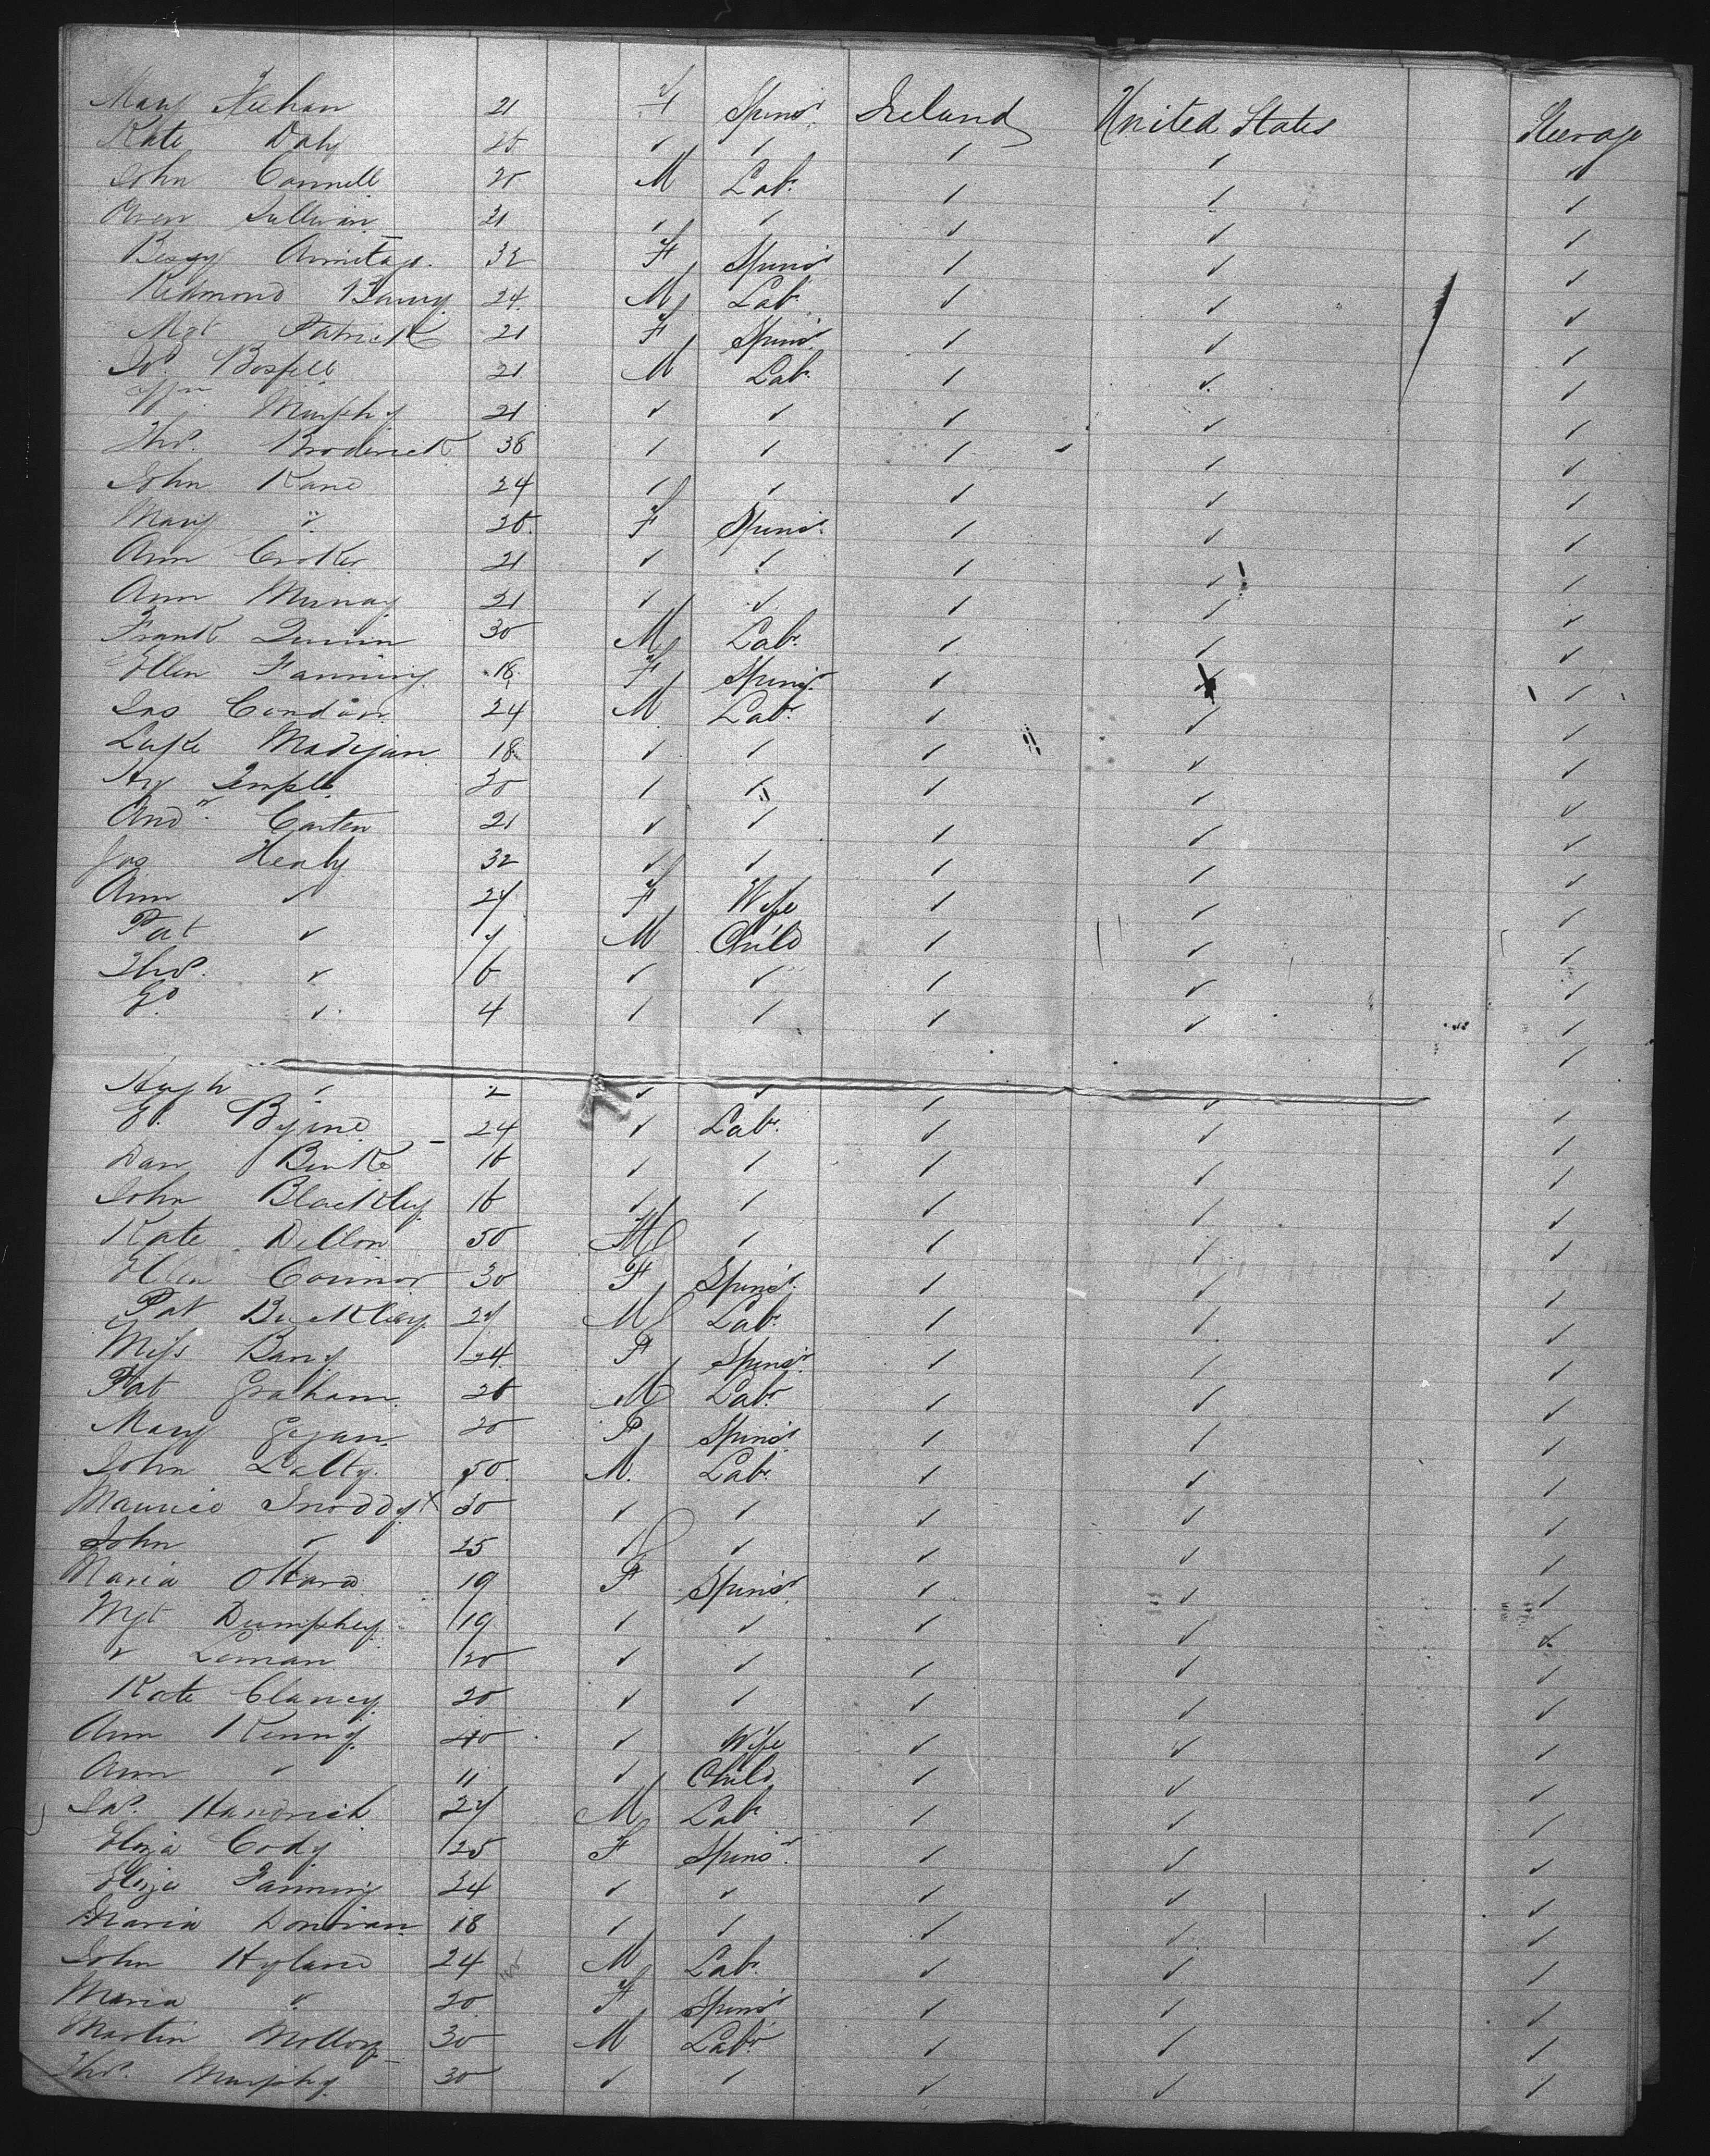 Mary Neehan 21 F Spinsr Ireland United States Steerage
Kate Daly ✓ ✓ ✓ ✓ ✓
John Connell 20 M Labr ✓ ✓ ✓
Owen Sullivan 21 ✓ ✓ ✓ ✓ ✓
Bessy Armitage 32 F Spinsr ✓ ✓ ✓
Redmond Barry 24 M Labr ✓ ✓ ✓
Mgt Patrick 21 F Spinsr ✓ ✓ ✓
21 M Labr ✓ ✓ ✓
Murphy 21 ✓ ✓ ✓ ✓ ✓
Thos. Broderick 38 ✓ ✓ ✓ ✓ ✓
John Kane 24 ✓ ✓ ✓ ✓ ✓
Mary " 26 F Spinsr ✓ ✓ ✓
Ann Croker 21 ✓ ✓ ✓ ✓ ✓
Ann Murray 21 ✓ ✓ ✓ ✓ ✓
Frank Quinn 30 M Labr ✓ ✓ ✓
Ellen Fanning 18 F Spinsr ✓ ✓ ✓
Jas Condon 24 M Labr ✓ ✓ ✓
Luke Madigan 18 ✓ ✓ ✓ ✓ ✓
Hy Temple 30 ✓ ✓ ✓ ✓ ✓
Andw. Carten 21 ✓ ✓ ✓ ✓ ✓
Jas Healy 32 ✓ ✓ ✓ ✓ ✓
Ann ✓ 27 F Wife ✓ ✓ ✓
Pat ✓ 7 M Child ✓ ✓ ✓
Thos. ✓ 6 ✓ ✓ ✓ ✓ ✓
✓ 4 ✓ ✓ ✓ ✓ ✓
Hugh ✓ 2 ✓ ✓ ✓ ✓ ✓
Byrne 24 ✓ Labr. ✓ ✓ ✓
Dan Burke 16 ✓ ✓ ✓ ✓ ✓
John Blackley 16 ✓ ✓ ✓ ✓ ✓
Kate Dillon 50 ✓ ✓ ✓ ✓
Ellen Connor 30 F Spinsr. ✓ ✓ ✓
Pat Buckley 27 M Labr ✓ ✓ ✓
Miss Barry 24 F Spinsr. ✓ ✓ ✓
Pat Graham 26 M Labr ✓ ✓ ✓
Mary Egan 20 F Spinsr ✓ ✓ ✓
John Lalty 50 M. Labr. ✓ ✓ ✓
Maurice Snoddy x 30 ✓ ✓ ✓ ✓ ✓
John ✓ 25 ✓ ✓ ✓ ✓ ✓
Maria OHara 19 F Spinsr. ✓ ✓ ✓
Mgt Dumphey 19 ✓ ✓ ✓ ✓ ✓
✓ Leman 20 ✓ ✓ ✓ ✓ ✓
Kate Clancy 20 ✓ ✓ ✓ ✓ ✓
Ann Kenny 40 ✓ Wife ✓ ✓ ✓
Ann ✓ 11 ✓ Child ✓ ✓ ✓
27 M Labr ✓ ✓ ✓
Eliza Cody 25 F Spinsr. ✓ ✓ ✓
Eliza Fanning 24 ✓ ✓ ✓ ✓ ✓
Maria Donovan 18 ✓ ✓ ✓ ✓ ✓
John Hyland 24 M Labr. ✓ ✓ ✓
Maria ✓ 20 F Spinsr ✓ ✓ ✓
Martin Molloy 30 M Labr ✓ ✓ ✓
Thos. Murphy 30 ✓ ✓ ✓ ✓ ✓